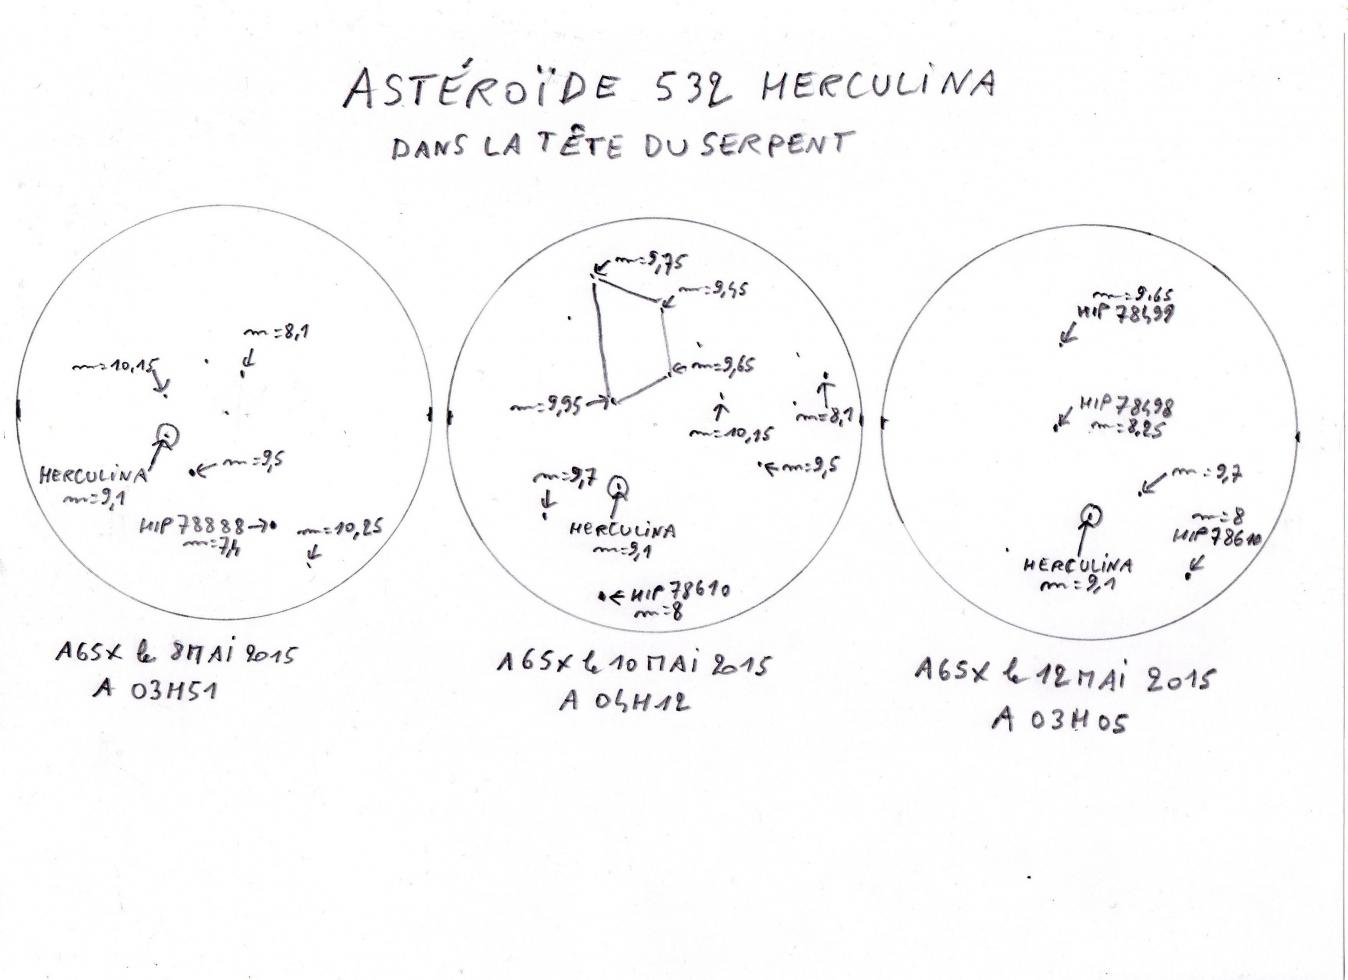 ASTÉROÏDE 532 HERCULINA
DANS LA TÊTE DU SERPENT
m=8,1
m=10,15
HERCULINA
m=9,1
m=9,5
HIP 78888
m=7,4
m=10,25
A 65X le 8 MAI 2015
A 03H51
m=9,75
m=9,45
m=9,65
m=9,95
m=10,15
m=8,1
m=9,5
m=9,7
HERCULINA
m=9,1
HIP 78610
m=8
A 65X le 10 MAI 2015
A 04H12
m=9,65
HIP 78499
HIP 78498
m=8,25
m=9,7
m=8
HIP 78610
HERCULINA
m=9,1
A 65X le 12 MAI 2015
A 03H05